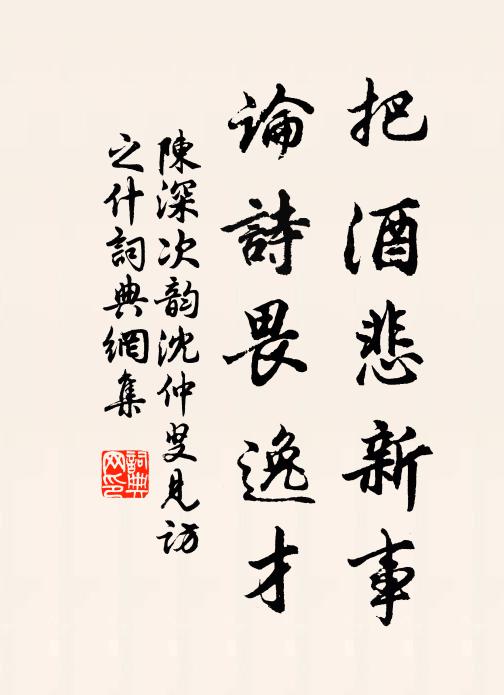 把酒悲新事
論詩畏逸才
陳深次韵沈仲叟見訪
之什詞典網集
詞典网印